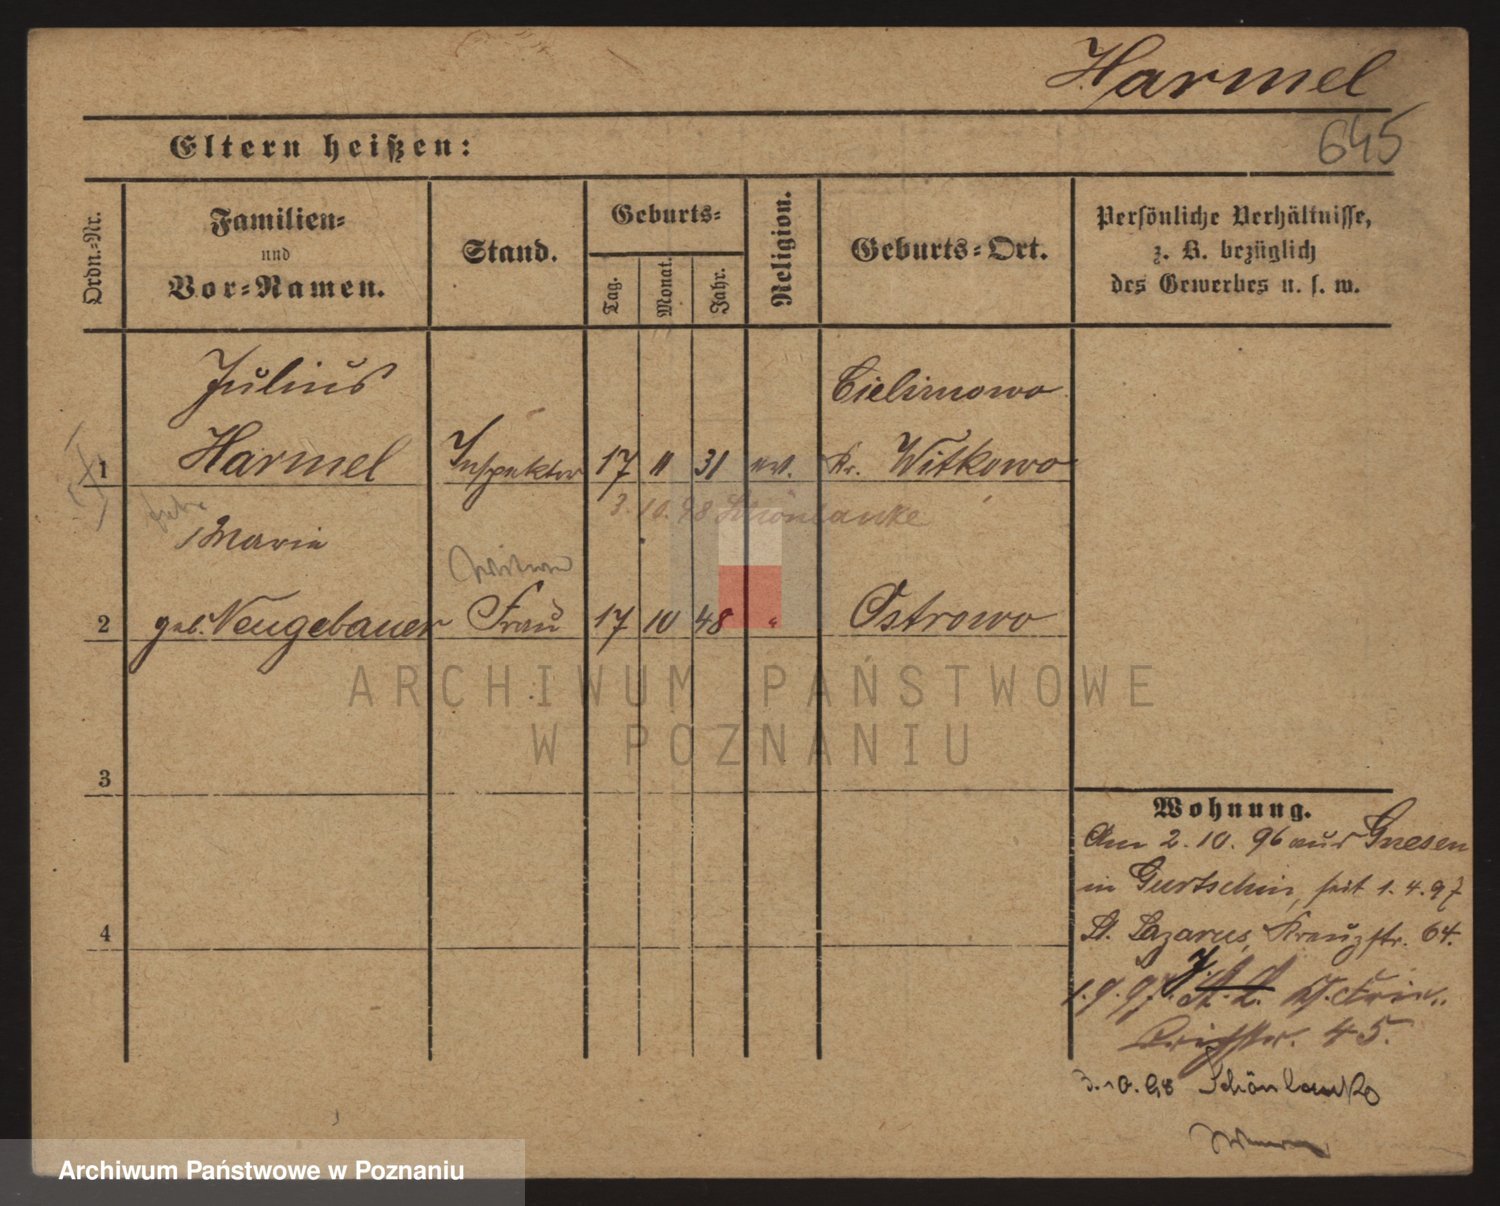 Harmel
645
Eltern heißen:
Ordn.-Nr.
Familien-
und
Vor-Namen.
Stand.
Geburts-
Tag.
Monat.
Jahr.
Religion.
Geburts-Ort.
Persönliche Verhältnisse,
z. B. bezüglich
des Gewerbes u. s. w.
Julius
Cielimowo
1 Harmel Inspektor 17 11 31 ev. Kr. Witkowo
3.10.98 Schönlanke
Marie
Witwe
2 geb. Neugebauer Frau 17 10 48 " Ostrowo
ARCHIWUM PAŃSTWOWE
W POZNANIU
3
4
Wohnung.
Am 2.10.96 aus Gnesen
in Gurtschin, seit 1.4.97
St. Lazarus, Kreuzstr. 64.
1.9.97 St. L.
45.
3.10.98 Schönlanke
Archiwum Państwowe w Poznaniu